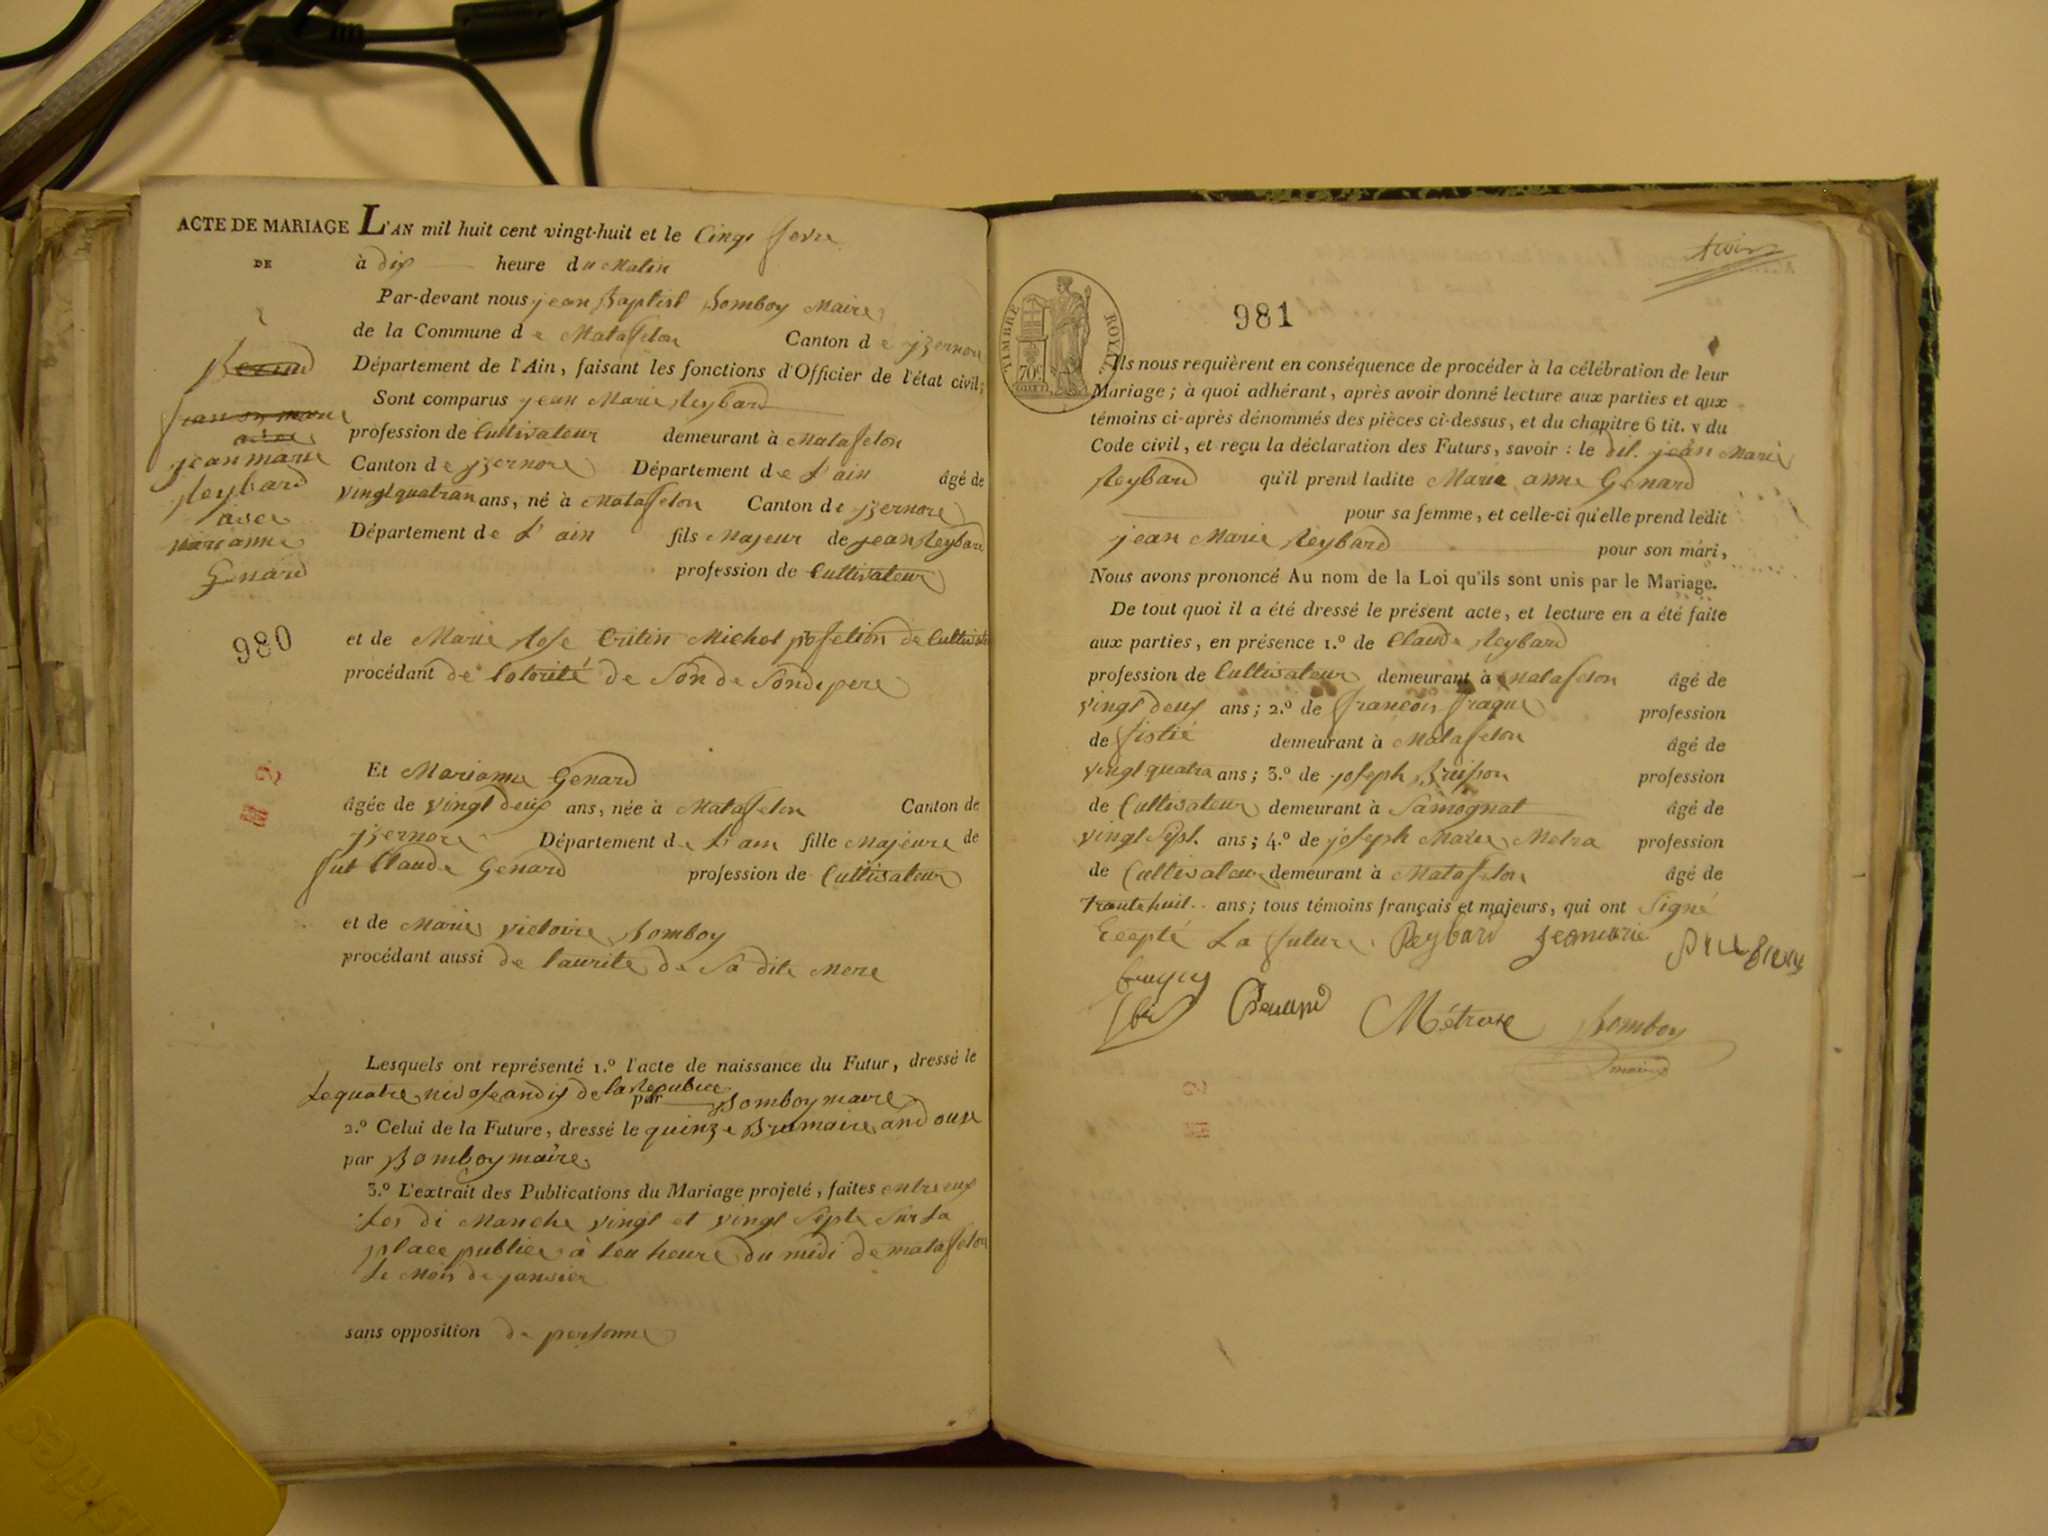 ACTE DE MARIAGE L'AN mil huit cent vingt-huit et le Cinq fevre
DE à dix heure du Matin
Par-devant nous jean Baptist Bomboy Maire
de la Commune de Matafelon Canton de jzernore
Département de l'Ain, faisant les fonctions d'Officier de l'état civil;
Sont comparus jean Marie Reybard
profession de Cultivateur demeurant à Matafelon
Canton de jzernore Département de L'ain âgé de
vingt quatran ans, né à Matafelon Canton de jzernore
Département de L'ain fils Majeur de jean Reybard
profession de Cultivateur
jean marie
Reybard
avec
mari anne
Genard
980
et de Marie Rose Critin Michol pofetion de Cultivate
procédant de Lotorité de Son de Sondipere
Et Marianne Genard
âgée de vingt deux ans, née à Matafelon Canton de
jzernore Département de L'ain fille Majeure de
fut Claude Genard profession de Cultivateur
et de Marie victoire Bomboy
procédant aussi de laurite de Sa dite Mere
Lesquels ont représenté 1.º l'acte de naissance du Futur, dressé le
Le quatre nivose an dix de la Republice
par Bomboy maire
2.º Celui de la Future, dressé le quinze Brumaire an douse
par Bomboy maire
3.º L'extrait des Publications du Mariage projeté, faites entre eux
Les di Manche vingt et vingt Septe Sur La
place publice à leu heure du midi de matafelon
Le Mois de janvier
sans opposition de personne
TIMBRE ROYAL
70c
981
Ils nous requièrent en conséquence de procéder à la célébration de leur
Mariage; à quoi adhérant, après avoir donné lecture aux parties et aux
témoins ci-après dénommés des pièces ci-dessus, et du chapitre 6 tit. v du
Code civil, et reçu la déclaration des Futurs, savoir: le dit jean Marie
Reybard qu'il prend ladite Marie anne Genard
pour sa femme, et celle-ci qu'elle prend ledit
jean Marie Reybard pour son mari,
Nous avons prononcé Au nom de la Loi qu'ils sont unis par le Mariage.
De tout quoi il a été dressé le présent acte, et lecture en a été faite
aux parties, en présence 1.º de Claude Reybard
profession de Cultivateur demeurant à Matafelon âgé de
vingt deux ans; 2.º de francois fraque profession
de demeurant à Matafelon âgé de
vingt quatra ans; 3.º de joseph Buisson profession
de Cultivateur demeurant à Samognat âgé de
vingt Sept. ans; 4.º de joseph Marie Metra profession
de Cultivateur demeurant à Matafelon âgé de
trante huit ans; tous témoins français et majeurs, qui ont Signé
Ecepté La future Reybard jeanmarie
Métrase Bomboy
maire